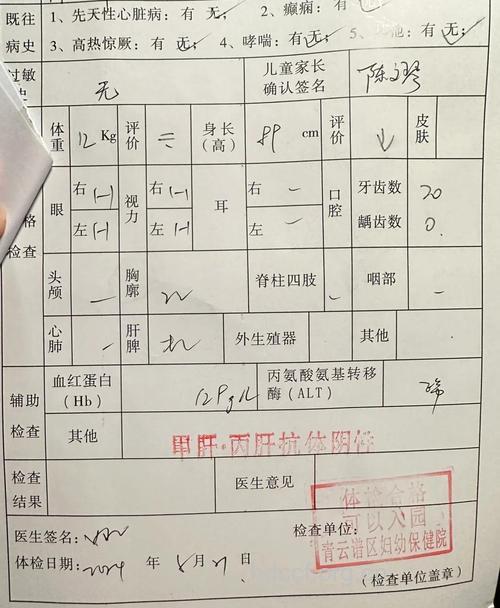 既往 1、先天性心脏病：有 无 2、癫痫：有
病史 3、高热惊厥：有 无； 4、哮喘：有 无； 5、
过敏史 无 儿童家长确认签名 陈
体重 12 Kg 评价 身长（高） 89 cm 评价 ↓ 皮肤
格检查
眼 右 (-) 视力 右 (-) 耳 右 - 口腔 牙齿数 20
左 (-) 左 (-) 左 - 龋齿数 0
头颅 胸廓 脊柱四肢 咽部
心肺 肝脾 外生殖器 其他
辅助检查 血红蛋白（Hb） 129g/L 丙氨酸氨基转移酶（ALT）
其他 甲肝·丙肝抗体阴性
检查结果 医生意见
体检合格
可以入园
青云谱区妇幼保健院
医生签名： 检查单位：
体检日期：2024 年 8 月 21 日
（检查单位盖章）